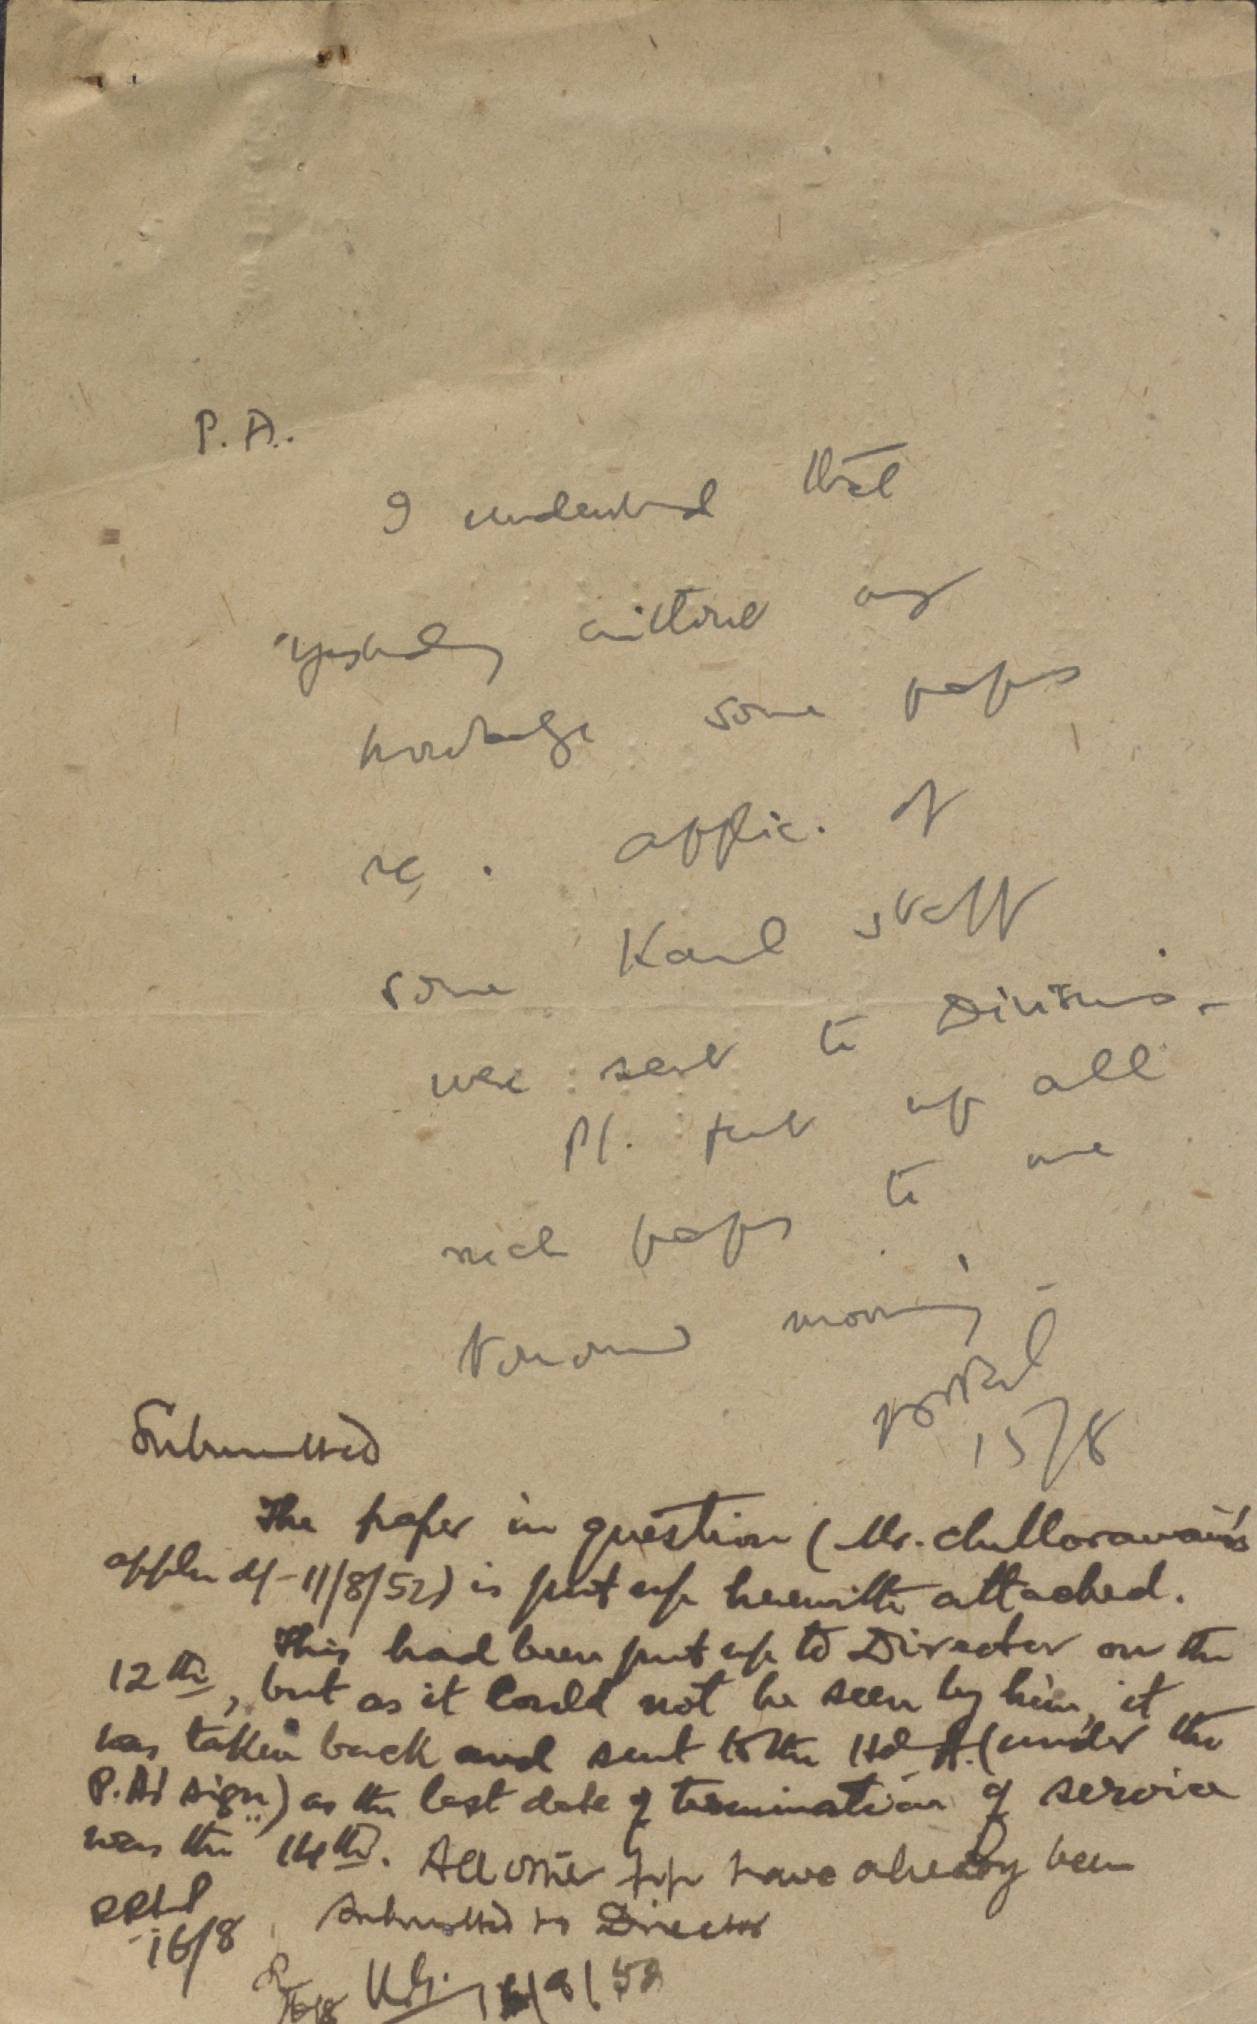 P.A.
I understand that
yesterday without my
knowledge some papers
re. applic. of
some Karl staff
were sent to Divisions -
Pl. put up all
such papers to me
tomorrow morning -
15/8
Submitted
The paper in question (Mr. Chullorawain's
appln d/- 11/8/52) is put up herewith attached.
This had been put up to Director on the
12th, but as it could not be seen by him, it
was taken back and sent to the Hd A. (under the
P.A's sign..) as the last date of termination of service
was the 14th. All other have already been
16/8 submitted to Director
16/8 /8/52